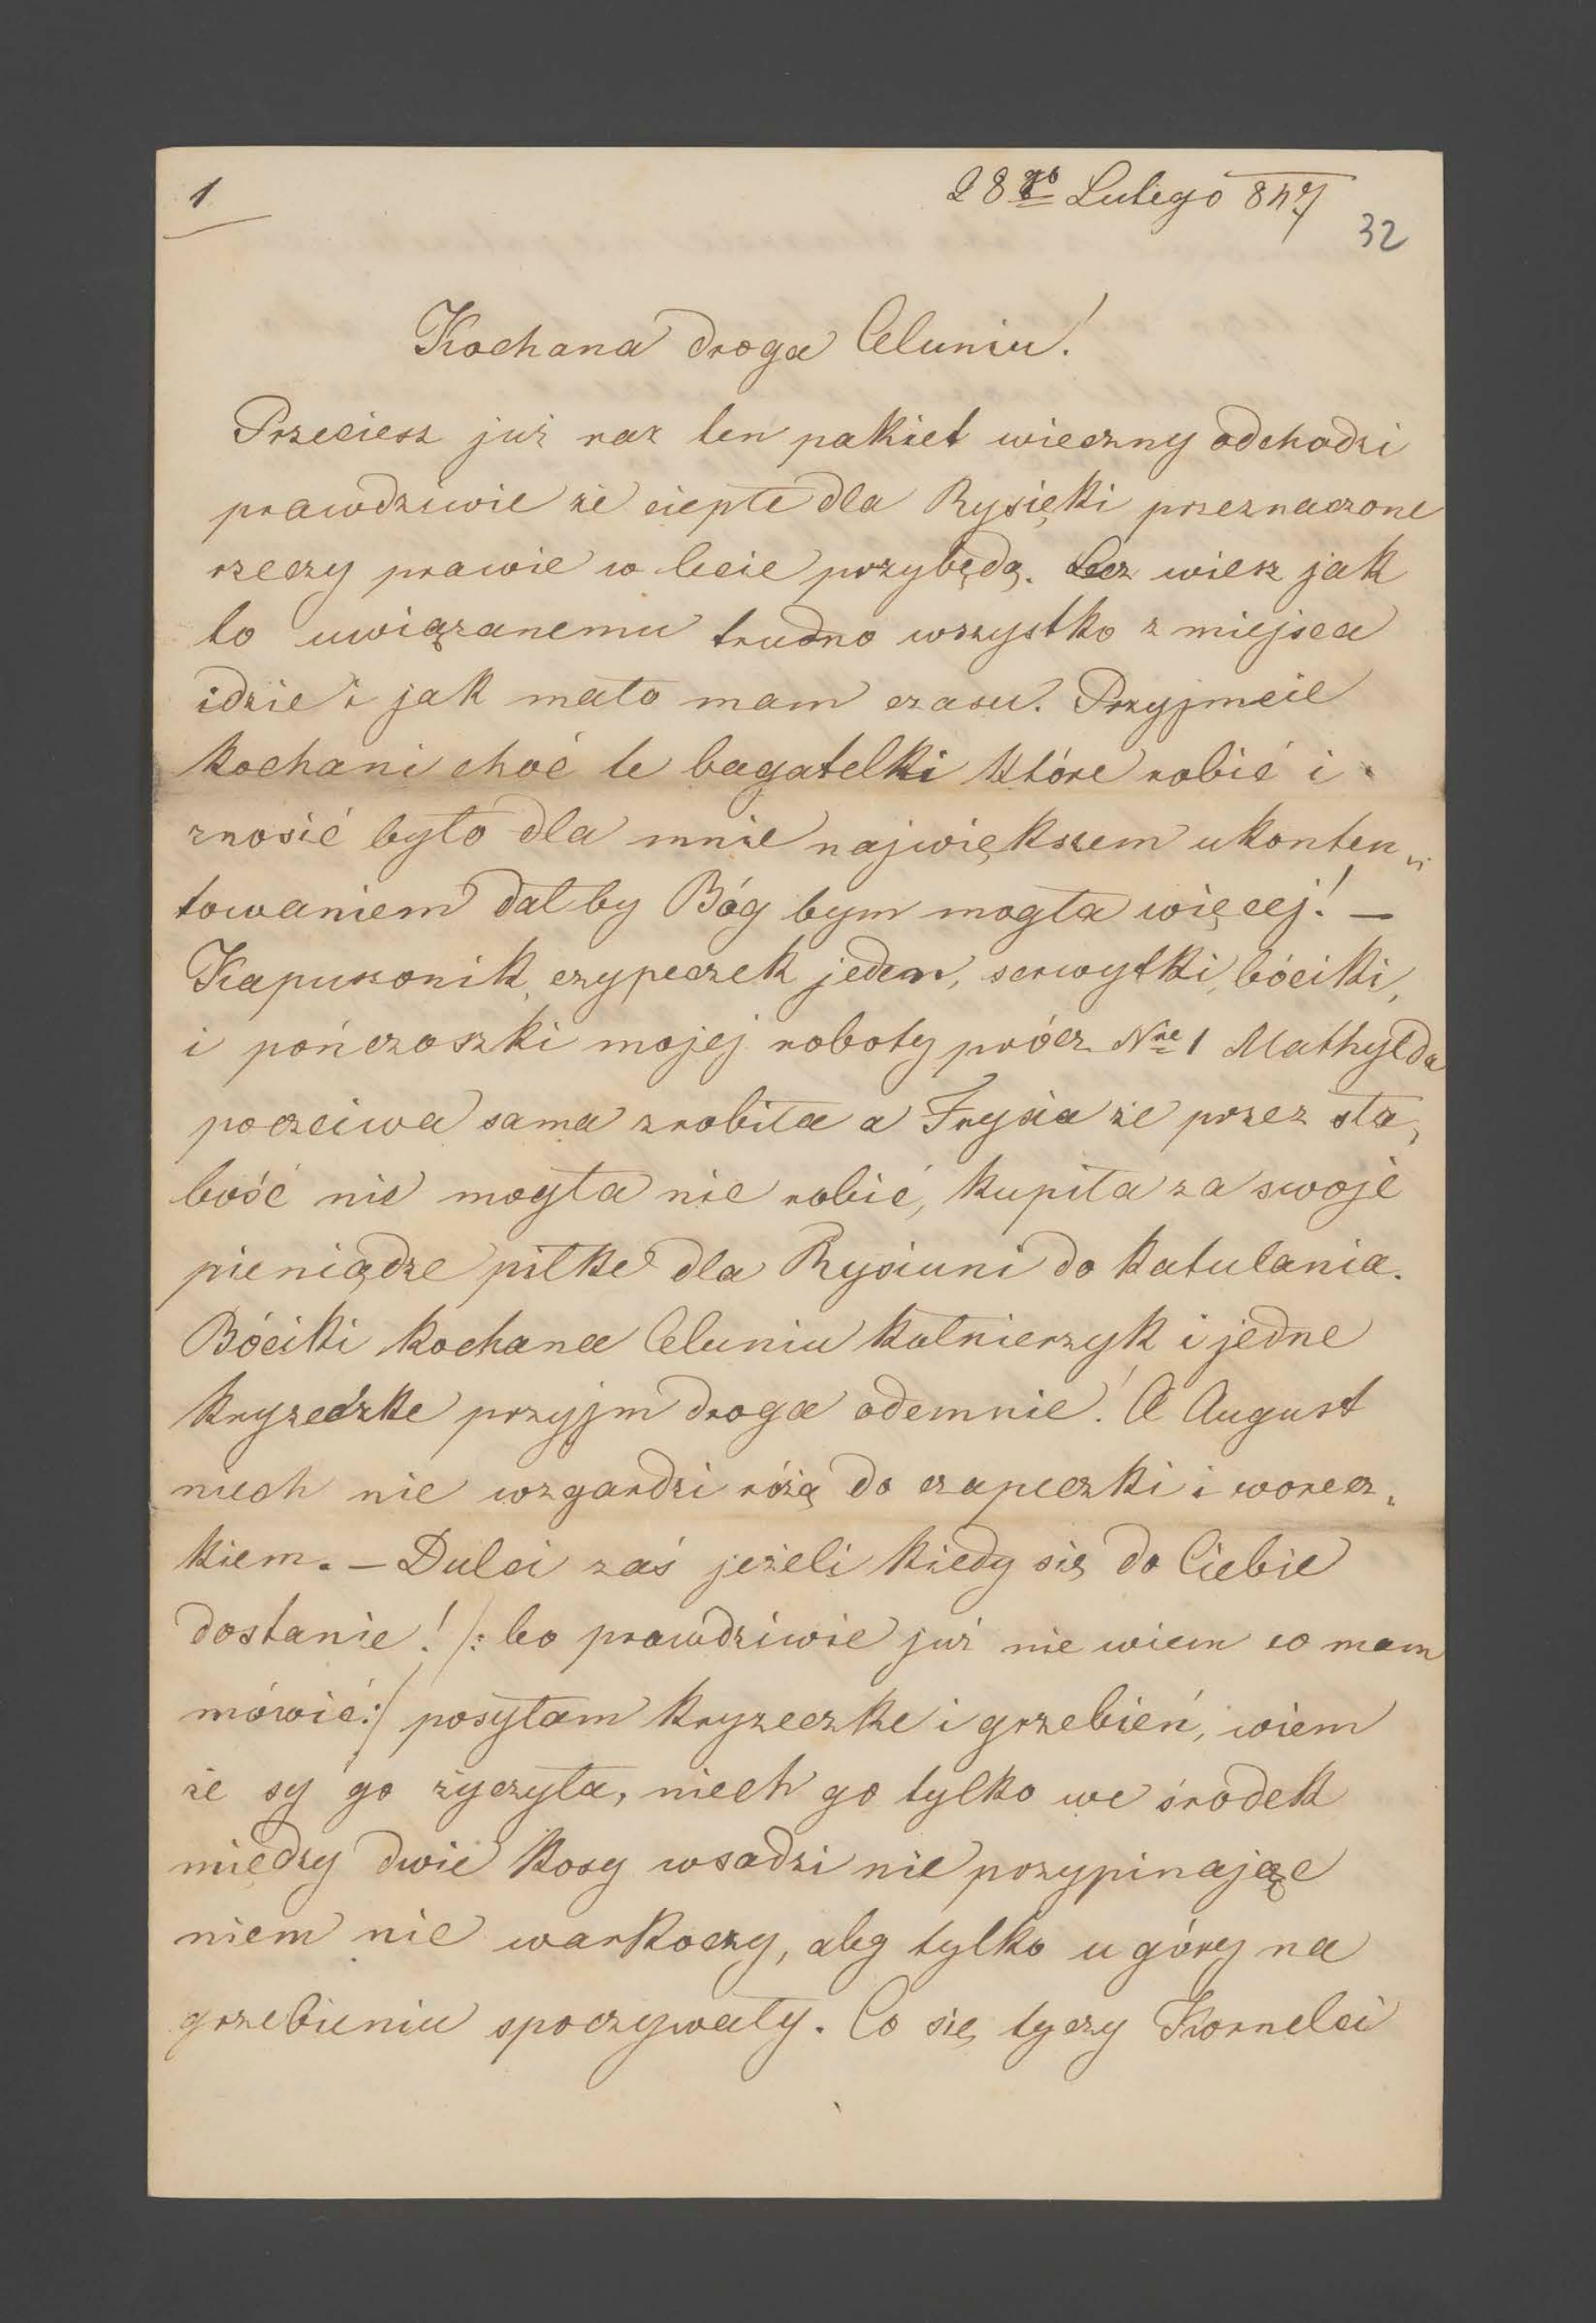 1
28go Lutego 847
32
Kochana droga Celuniu!
Przeciesz już raz ten pakiet wieczny odchodzi
prawdziwie że ciepłe dla Rysięki przeznaczone
rzeczy prawie w lecie przybędą. Lecz wiesz jak
to uwiązanemu trudno wszystko z miejsca
idzie i jak mało mam czasu. Przyjmcie
kochani choć te bagatelki które robić i
znosić było dla mnie największem ukonten„
towaniem dał by Bóg bym mogła więcej! —
Kapuzonik, czypeczek jeden, serwytki, bóciki,
i pończoszki mojej roboty prócz Nre 1 Mathylda
poczciwa sama zrobiła a Frysia że przez sła„
bość nie mogła nic robić, kupiła za swoje
pieniądze piłke dla Rysiuni do katulania.
Bóciki kochana Celuniu kołnierzyk i jedne
kryzeczke przyjm droga odemnie! A August
niech nie wzgardzi różą do czapeczki i worecz„
kiem. — Dulci zaś jeżeli kiedy się do Ciebie
dostanie! /: bo prawdziwie już nie wiem co mam
mówić :/ posyłam kryzeczke i grzebień, wiem
że sy go życzyła, niech go tylko we środek
między dwie kosy wsadzi nie przypinając
niem nic warkoczy, aby tylko u góry na
grzebieniu spoczywały. Co się tyczy Kornelci